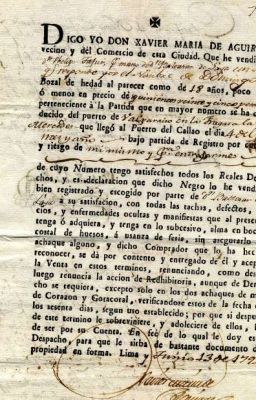 ✠
DIGO YO DON XAVIER MARIA DE AGUIR
vecino y del Comercio de esta Ciudad. Que he vendi
Bozal de hedad al parecer como de 18 años, poco
ó menos en precio de quinientos veinte y cinco pe
perteneciente à la Partida que en mayor numero se ha
ducido del puerto de Valparaiso en la
Mercedes que llegó al Puerto del Callao el dia 4 del
bajo partida de Registro por c
y riesgo de mi mismo y
de cuyo Número tengo satisfechos todos los Reales De
chos, y es declaracion que dicho Negro lo he vend
bien registrado y escogido por parte de
à su satisfacion, con todas las tachas, defectos,
cios, y enfermedades ocultas y manifiestas que al present
tenga ó adquiera, y tenga en lo subcesivo, alma en boc
costal de huesos, á usanza de feria, sin asegurarlo
achaque alguno, y dicho Comprador que lo ha he
reconocer, se dá por contento y entregado de él y acep
la Venta en estos terminos, renunciando, como des
luego renuncia la accion de Redhibitoria, aunque de Der
cho se requiera, excepto solo en los dos achaques de m
de Corazon y Gotacoral, verificandose estos de la fecha
à sesenta dias, segun uso establecido; por que si despu
de este termino le sobreviniere, y adoleciere de ellos, h
de ser por su Cuenta. En fee de lo qual le doy es
Despacho, para que le sirba de bastante documento d
propiedad en forma. Lima, y Junio 13 de 179